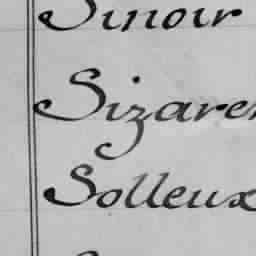 Sinoir
Sizaren
Solleux